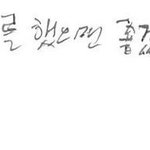 를 했으면 좋